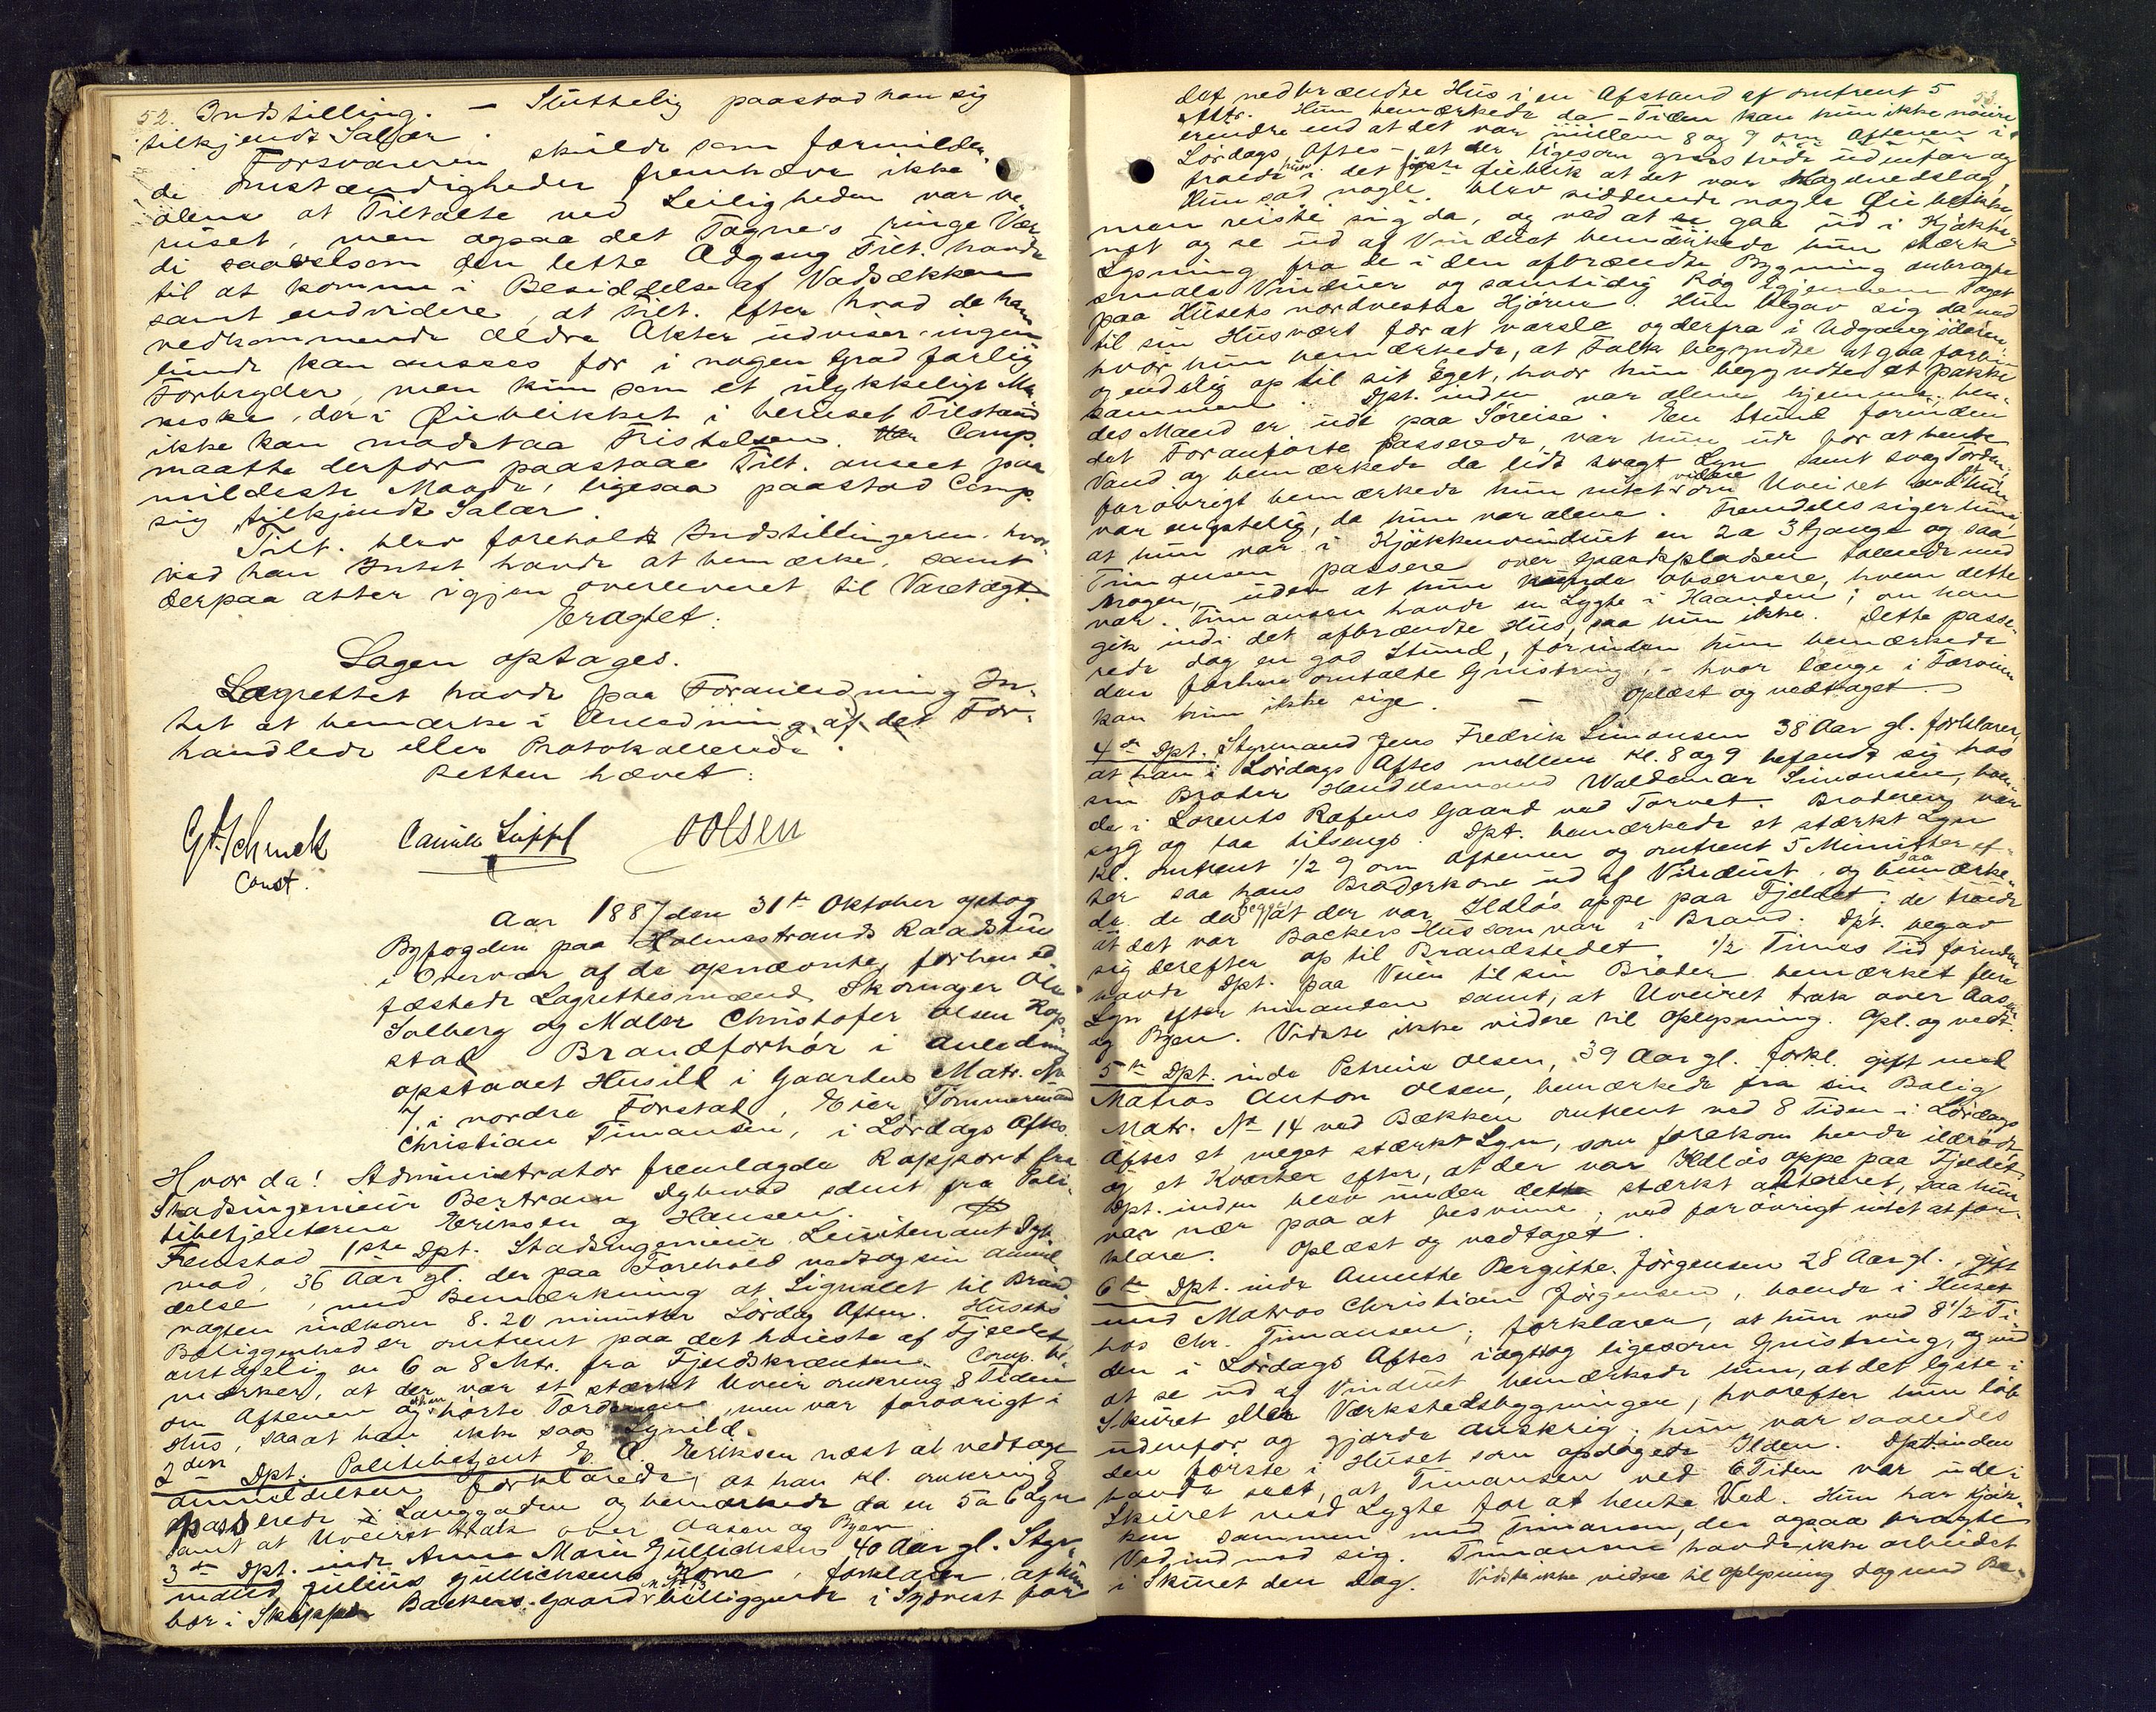 52. Indstilling. — Sluttelig paastod han sig
tilkjendt Salær.
Forsvareren skulde som formilden-
de Omstændigheder fremhæve ikke
alene at Tiltalte ved Leiligheden var be-
ruset, men ogsaa det Tagnes ringe Vær
di saavelsom den lette Adgang Tilt. havde
til at komme i Besiddelse af Vadsækken
samt endvidere, at Tilt. efter hvad de ham
vedkommende ældre Akter udviser ingen
lunde kan ansees for i nogen Grad farlig
Forbryder, men kun som et ulykkeligt Me
neske, der i Øieblikket i beruset Tilstand
ikke kan modstaa Fristelsen. Comp.
maatte derfor paastaae Tilt. anseet paa
mildeste Maade, ligesaa paastod Comp.
sig tilkjendt Salær.
Tilt. blev foreholdt Indstillingeren, hvor-
ved han Intet havde at bemærke, samt
derpaa atter igjen overleveret til Varetægt.
Eragtet:
Sagen optages.
Lagrettet havde paa Foranledning In-
tet at bemærke i Anledning af det For-
handlede eller Protokollerede.
Retten hævet:
G. Schmck Camillo Lippl O Olsen
Const.
Aar 1887 den 31te Oktober optog
Byfogden paa Holmestrands Raadstue
i Overvær af de opnævnte, forhen ed
fæstede Lagrettesmænd Skomager Ole
Solberg og Maler Christofer Olsen Rop
stad Brandforhør i Anledning
opstaaet Husild i Gaarden Matr. No
7 i nordre Forstad, Eier Tømmermand
Christian Timansen, i Lørdags Aftes.
Hvor da! Administrator fremlagde Rapport fra
Stadsingeniør Bertram Dybwad samt fra Poli-
tibetjenterne Eriksen og Hansen.
Fremstod 1ste Dpt. Stadsingeniør Leuitenant Dyb
wad, 36 Aar gl. der paa Forehold vedtog sin Anmel
delse, med Bemærkning at Signalet til Brand
vagten indkom 8.20 minutter Lørdag Aften. Husets
Beliggenhed er omtrent paa det høieste af Fjeldet
antagelig en 6 a 8 Mtr. fra Fjeldskrænten. Comp. be
mærker, at der var et stærkt Uveir omkring 8 Tiden
om Aftenen og at han hørte Tordenen, men var forøvrigt i
Hus, saa at han ikke saa Lynild.
2den Dpt. Politibetjent E. A. Eriksen næst at vedtage
Anmeldelsen forklarede, at han kl. omkring 8
passerede i Langgaden og bemærkede da en 5 a 6 Lyn
samt at Uveiret trak over Aasen og Byen.
3de Dpt. inde Anne Marie Gullichsen 40 Aar gl. Styr-
mand Julius Gullichsens Kone, forklarer, at hun
bor i Skipper Backers Gaard M. No 13 beliggende i Sydvest for
53
det nedbrændte Hus i en Afstand af omtrent 5
Mtr. Hun bemærkede da – Tiden kan hun ikke nøiere
erindre end at det var mellem 8 og 9 om Aftenen i
Lørdags Aftes –, at der ligesom gnistrede udenfor og
troede hun i det første Øieblik at det var Hagenedslag,
Hun sad nogle. blev siddende nogle Øieblikke,
men reiste sig da, og ved at gaa ud i Kjøkke-
net og se ud af Vinduet bemærkede hun stærk
Lysning fra de i den afbrændte Bygning anbragte
smale Vinduer og samtidig Røg igjennem Taget
paa Husets nordvestre Hjørne. Hun begav sig da ned
til sin Husvært for at varsle og derfra i Udgangsdøren,
hvor hun bemærkede, at Folk begyndte at gaa forbi
og endelig op til sit eget, hvor hun begyndte at pakke
sammen. Dpt. inden var alene hjemme, hen-
des Mand er ude paa Søreise. En Stund forinden
det Foranførte passerede, var hun ude for at hente
Vand og bemærkede da lidt svagt Lyn samt svag Torden,
forøvrigt bemærkede hun intet videre om Uveiret hun
var ængstelig, da hun var alene. Fremdeles siger hun,
at hun var i Kjøkkenvinduet en 2 a 3 Gange og saa
Timansen passere over Gaardspladsen talende med
Nogen, uden at hun kunde observere, hvem dette
var. Timansen havde en Lygte i Haanden; om han
gik ind i det afbrændte Hus, saa hun ikke. Dette passe-
rede dog en god Stund, forinden hun bemærkede
den forhen omtalte Gnistring, – hvor længe i Forveien
kan hun ikke sige. – Oplæst og vedtaget.
4de Dpt. Styrmand Jens Fredrik Simonsen 38 Aar gl. forklarer,
at han i Lørdags Aftes mellem Kl. 8 og 9 befandt sig hos
sin Broder Handelsmand Waldemar Simonsen, boen-
de i Lorents Rafens Gaard ved Torvet. Broderen var
syg og laa tilsengs. Dpt. bemærkede et stærkt Lyn
kl. omtrent ½ 9 om Aftenen og omtrent 5 Minutter ef-
ter saa hans Broderkone ud af Vinduet, og saa bemærke-
de de da begge, at der var Ildløs oppe paa Fjeldet; de troede
at det var Backers Hus som var i Brand. Dpt. begav
sig derefter op til Brandstedet. ½ Times Tid forinden
havde Dpt. paa Veien til sin Broder bemærket flere
Lyn efter hinanden samt, at Uveiret trak over Aasen
og Byen. Vidste ikke videre til Oplysning. Opl. og vedt.
5te Dpt. inde Petrine Olsen, 39 Aar gl. forkl. gift med
Matros Anton Olsen, bemærkede fra sin Bolig
Matr. No 14 ved Bækken omtrent ved 8 Tiden i Lørdags
Aftes et meget stærkt Lyn, som forekom hende ildrødt,
og et Kvarter efter, at der var Ildløs oppe paa Fjeldet.
Dpt. inden blev under dette stærkt altereret, saa hun
var nær paa at besvime; ved forøvrigt intet at for-
klare. Oplæst og vedtaget.
6te Dpt. inde Anette Pergitte Jørgensen 28 Aar gl., gift
med Matros Christian Jørgensen, boende i Huset
hos Chr. Timansen, forklarer, at hun ved 8½ Ti-
den i Lørdags Aftes iagttog ligesom Gnistring, og ved
at se ud af Vinduet bemærkede hun, at det lyste i
Skuret eller Værkstedsbygningen, hvorefter hun løb
udenfor og gjorde Anskrig; hun var saaledes
den første i Huset som opdagede Ilden. Dpt.inden
havde seet, at Timansen ved 6 Tiden var ude i
Skuret med Lygte for at hente Ved. Hun har Kjøk-
ken sammen med Timansen, der ogsaa bragte
Ved ind med sig. Timansen havde ikke arbeidet
i Skuret den Dag. Vidste ikke videre til Oplysning dog med Be-